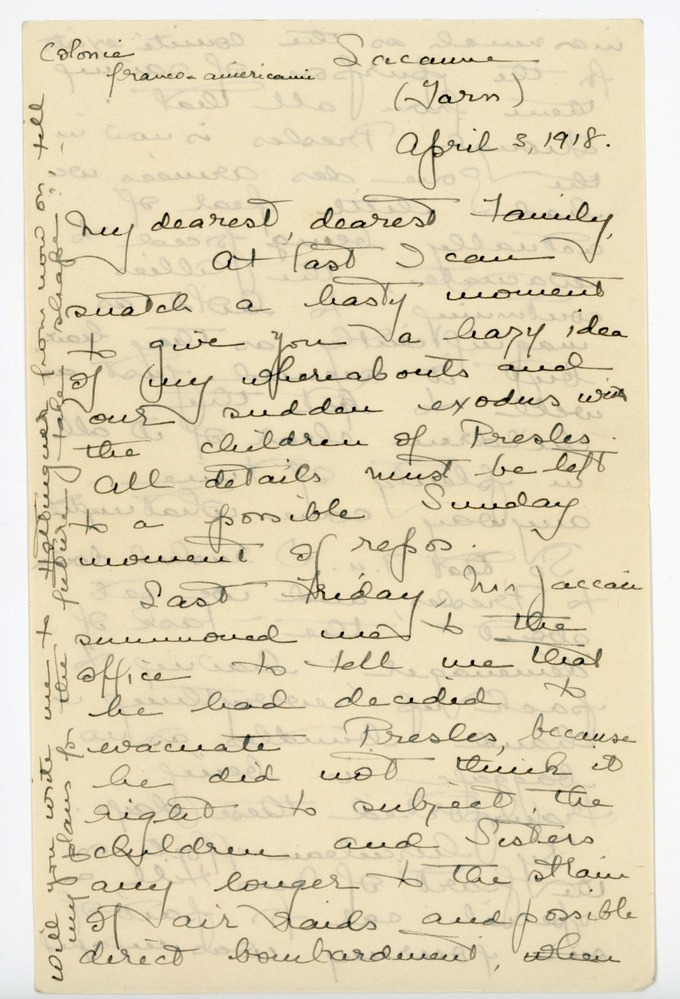 Colonie
franco-americaine
Lacaune
(Tarn)
April 3, 1918.
My dearest, dearest Family,
At last I can
snatch a hasty moment
to give you a hazy idea
of my whereabouts and
our sudden exodus with
the children of Presles.
All details must be left
to a possible Sunday
moment of repos.
Last Friday, Mr Jaccaci
summoned me to the
office to tell me that
he had decided to
evacuate Presles, because
he did not think it
right to subject the
children and Sisters
any longer to the strain
of air raids and possible
direct bombardment, when
Will you write me to Hottinguer from now on, till
my plans for the future take shape?